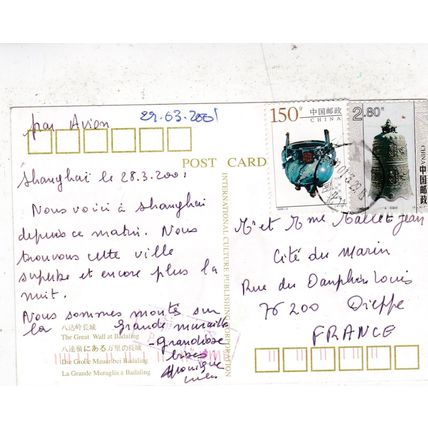 par Avion
29.03.2001
150分
中国邮政
CHINA
2.80
中国邮政
CHINA
POST CARD
Shanghai le 28.3.2001
Nous voici à Shanghai
depuis ce matin. Nous
trouvons cette ville
superbe et encore plus la
nuit.
Nous sommes montés sur
la grande muraille
-Grandiose
bises
Monique
八达岭长城
The Great Wall at Badaling
八達嶺にある万里の長城
Die Große Mauer bei Badaling
La Grande Muraglia a Badaling
INTERNATIONAL CULTURE PUBLISHING CORPORATION
Mr et Mme Mallet Jean
Cité du Marin
Rue du Dauphin Louis
76200 Dieppe
FRANCE